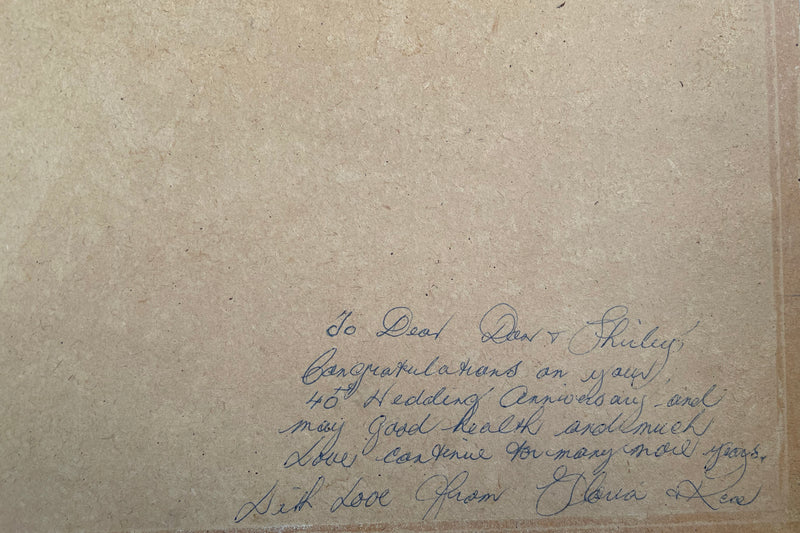 To Dear Don + Shirley,
Congratulations on your
45th Wedding Anniversary and
may good health and much
Love continue for many more years.
With Love from Gloria + Rene